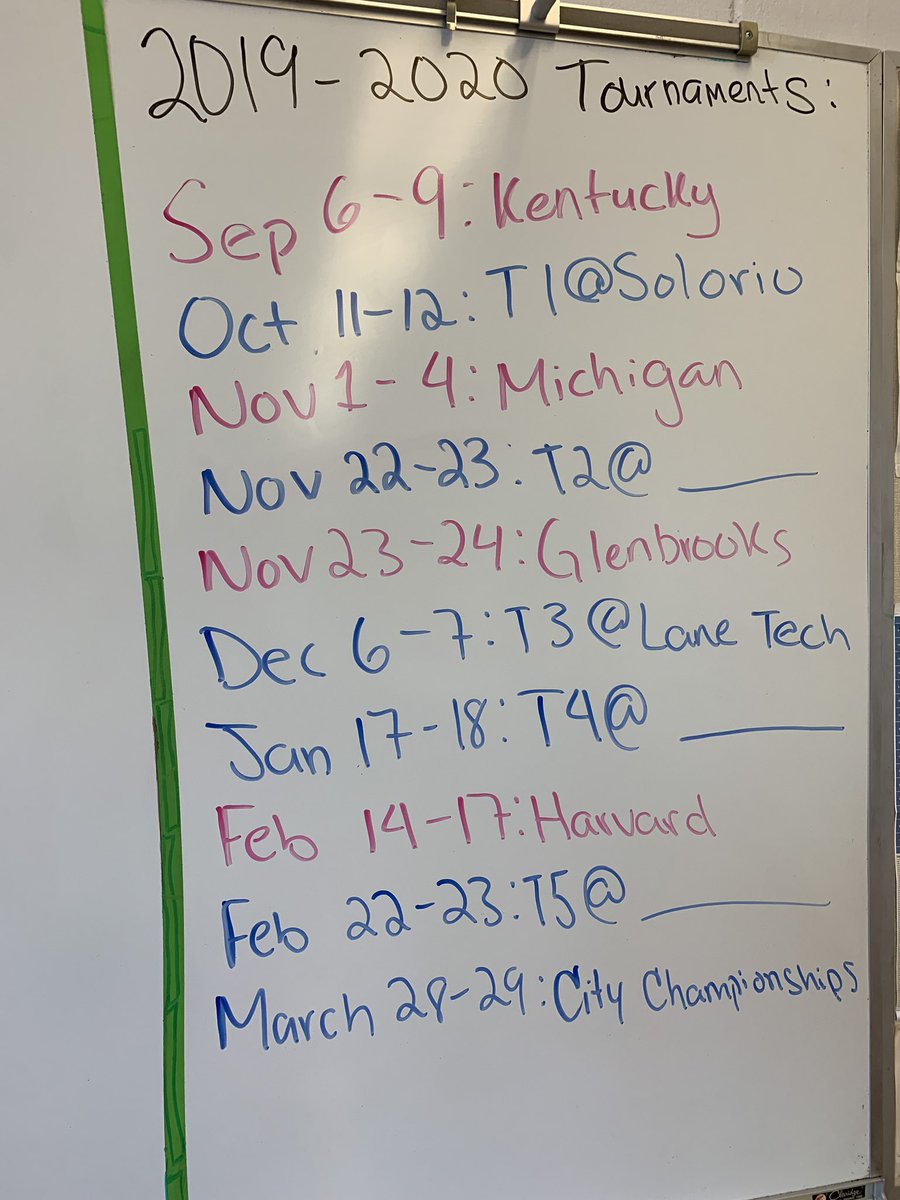 2019-2020 Tournaments:
Sep 6-9: Kentucky
Oct 11-12: T1@Solorio
Nov 1-4: Michigan
Nov 22-23: T2@ ____
Nov 23-24: Glenbrooks
Dec 6-7: T3@Lane Tech
Jan 17-18: T4@ ____
Feb 14-17: Harvard
Feb 22-23: T5@ ____
March 28-29: City Championships